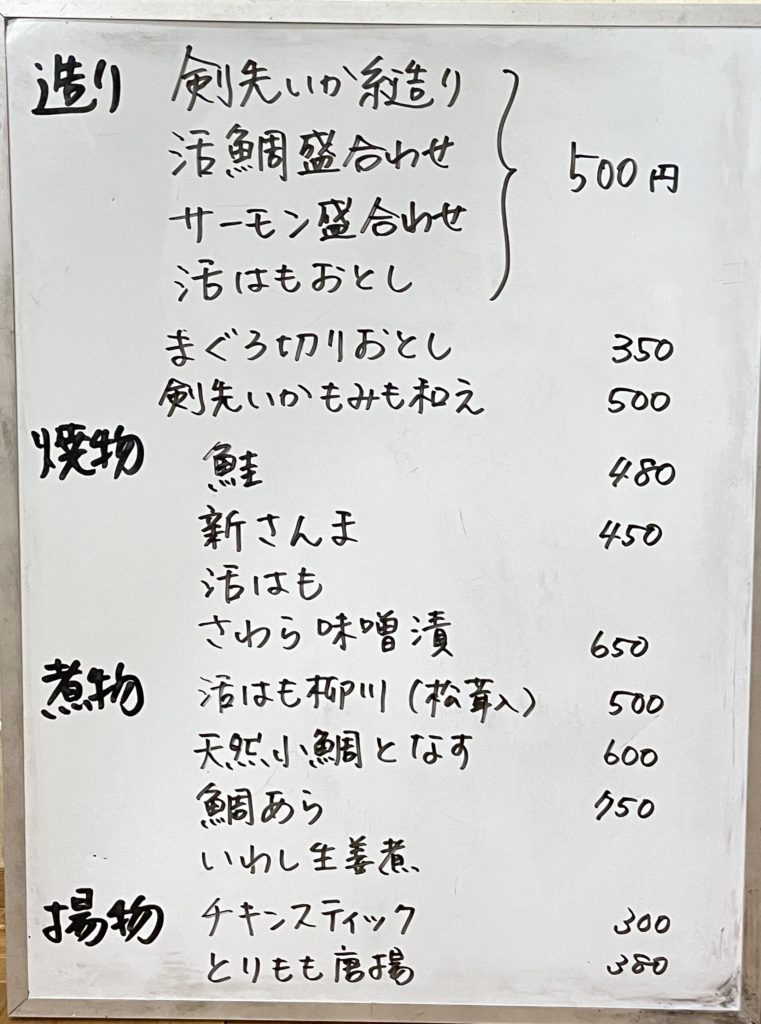 造り 剣先いか糸造り
活鯛盛合わせ
サーモン盛合わせ
活はもおとし
500円
まぐろ切りおとし 350
剣先いかもみも和え 500
焼物
鮭 480
新さんま 450
活はも
さわら味噌漬 650
煮物 活はも柳川(松茸入) 500
天然小鯛となす 600
鯛あら 750
いわし生姜煮
揚物 チキンスティック 300
とりもも唐揚 380